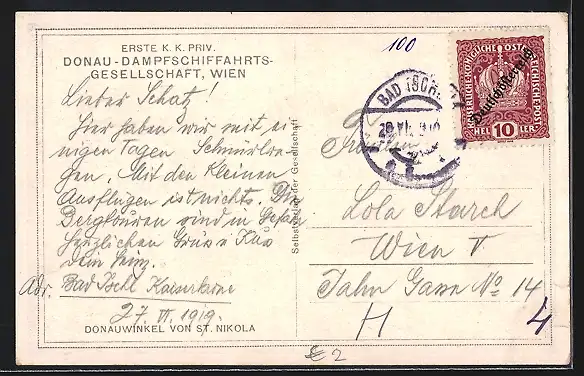 ERSTE K. K. PRIV.
DONAU-DAMPFSCHIFFAHRTS-
GESELLSCHAFT, WIEN
Lieber Schatz!
Hier haben wir seit ei
nigen Tagen Schnürlre
gen. Mit den kleinen
Ausflügen ist nichts. Die
Bergtouren sind in Gefahr
Herzlichen Gruss u Kuss
Dein Heinz.
Adr. Bad Ischl Kaiserkrone
27. VI. 1919.
DONAUWINKEL VON ST. NIKOLA
Selbstverlag der Gesellschaft
100
BAD ISCHL
28 VI
Deutschösterreich
HELLER
10
Lola Starch
Wien V
Jahn Gasse No 14
H
4
2